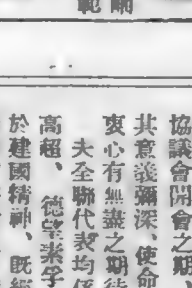 範綱
協議會開會之期
其意義彌深、使命
衷心有無盡之期待
夫全聯代表均係
高超、德望素孚
於建國精神、既